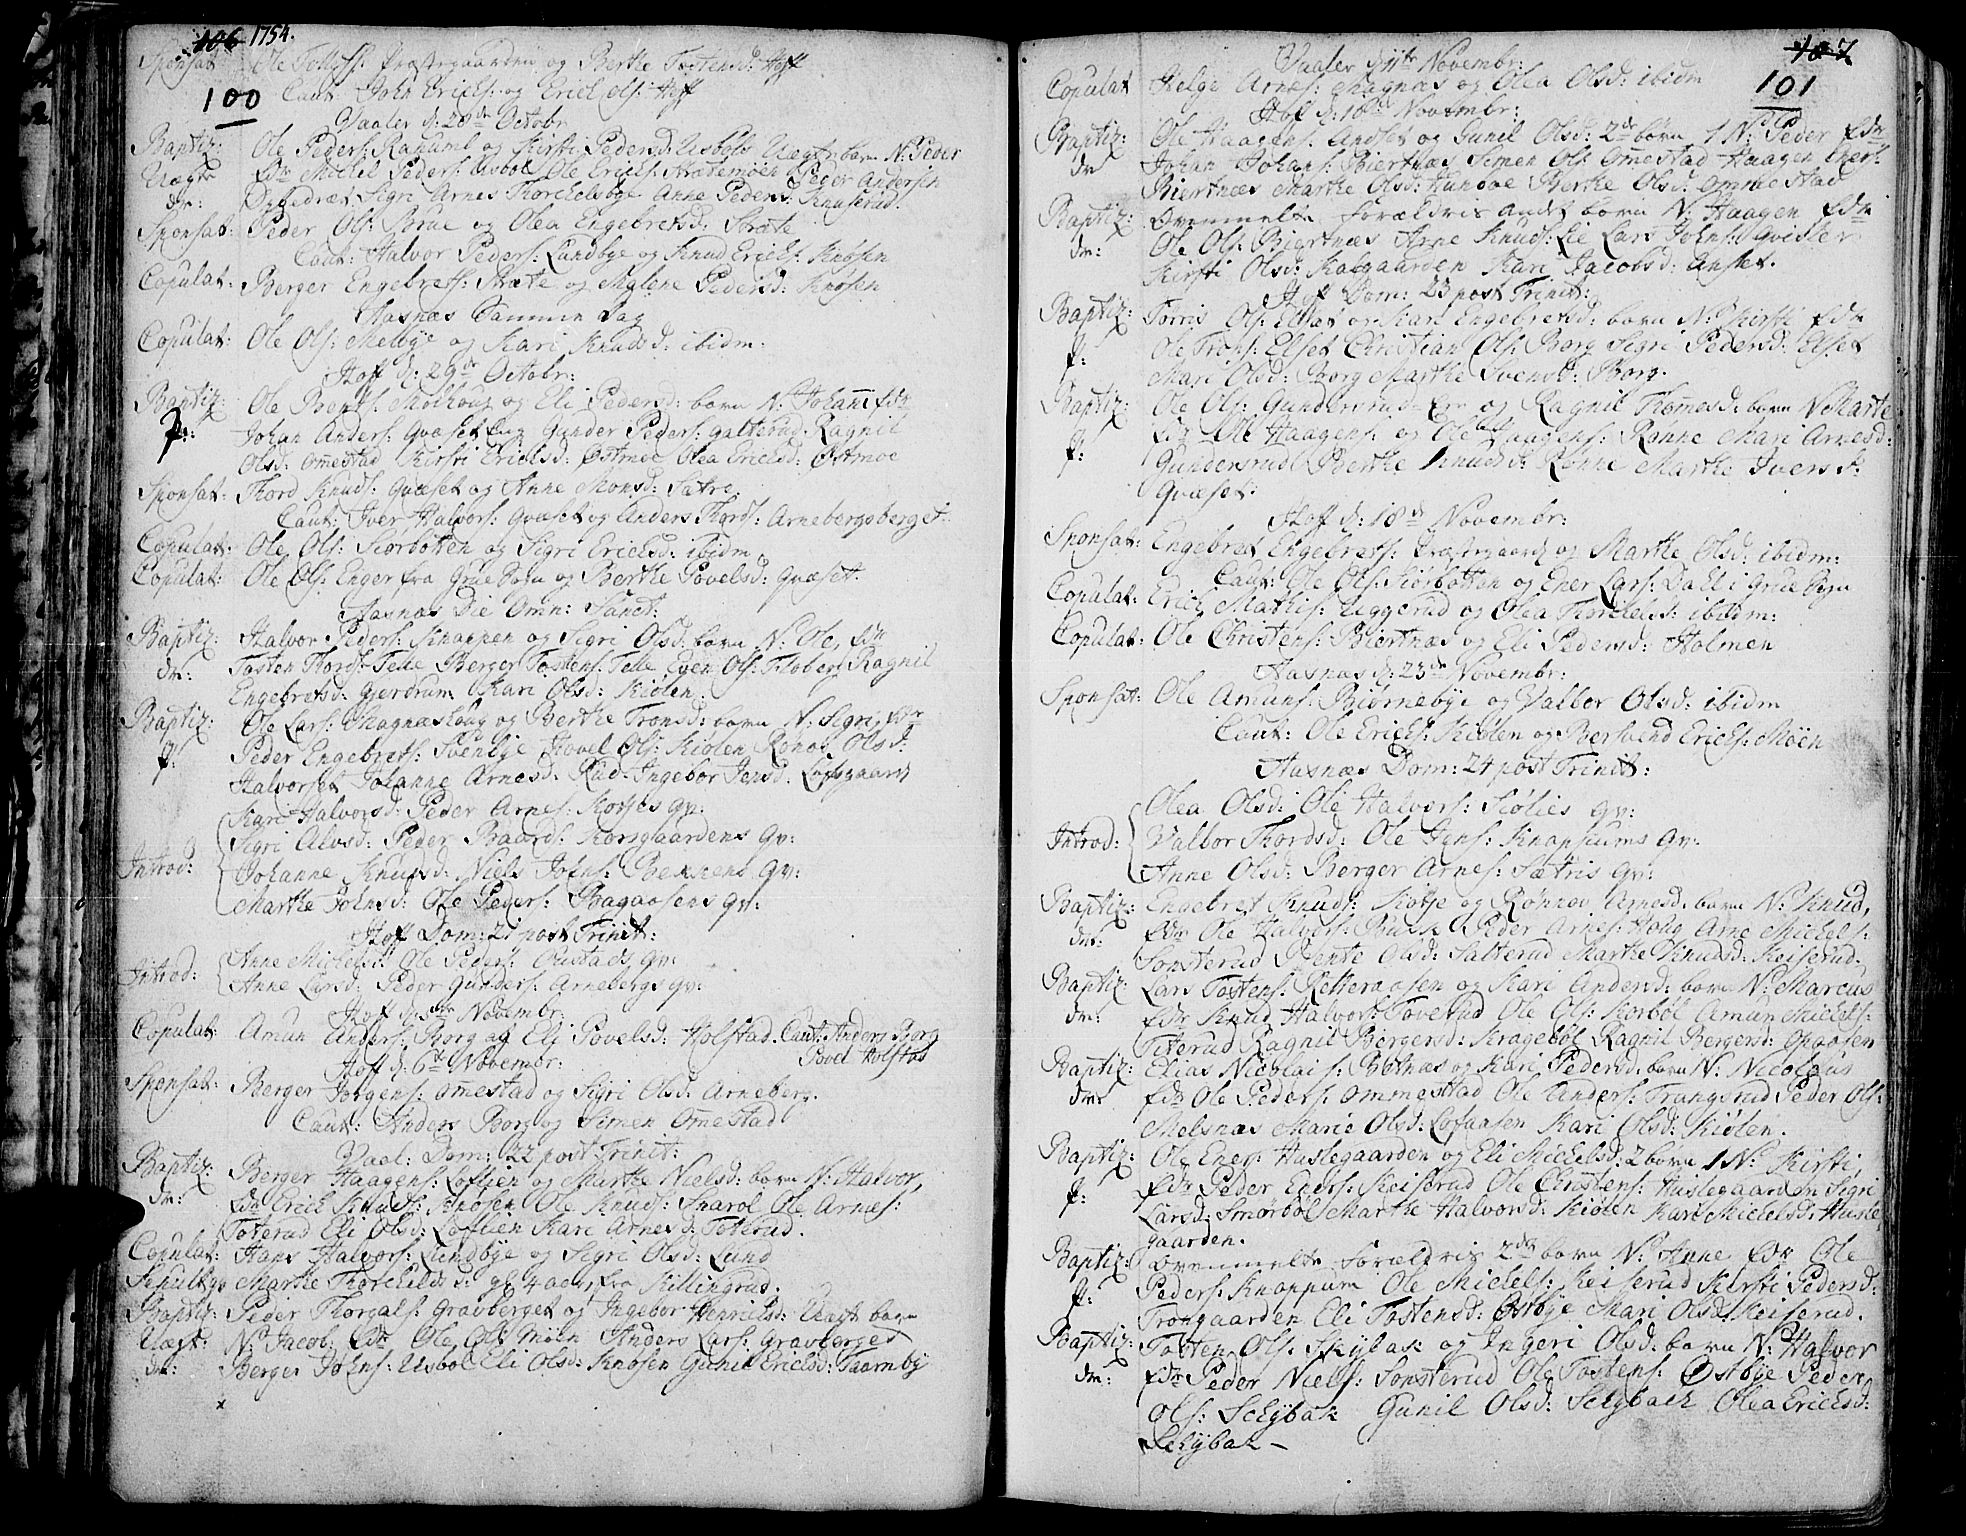 106 1754.
Sponsat Ole Præstegaarden og Berthe Tostensd: Hoff
100 Caut: John Ericks: og Erick Ols: Hoff
Vaaler d: 28de Octobr
Baptiz: Ole Peders: og Kirsti Pedersd: Usbøls Uægte barn N: Peder
Uægte fdr Mickel Peders: Usbøl Ole Ericks: Peder Anders:
dr: Sigri Arnes Thorkelsbye Anne Pedersd: Knuserud.
Sponsat: Peder Ols: Brue og Olea Engebretsd: Stræte
Caut: Halvor Peders: Lundbye og Knud Ericks: Knøsen
Copulat: Berger Engebrets: Stræte og Mylene Pedersd: Knøsen
Aasnæs Samme Dag
Copulat: Ole Ols: Melbye og Kari Knudsd: ibidm.
Hoff d: 29de Octobr:
Baptiz: Ole Bents: Molhoug og Eli Pedersd: barn N: Johan fdr
p: Johan Anders: Qvæset Gunder Peders: Galterud Ragnil
Olsd: Ommestad Kirsti Ericksd: Østmoe Olea Ericksd: Østmoe
Sponsat: Thord Knuds: Qvæset og Anne Monsd: Sætre
Caut: Iver Halvors: Qvæset og Anders Thords: Arnebergsberget.
Copulat: Ole Ols: Kiorbotten og Sigri Ericksd: ibidm.
Copulat: Ole Ols: Enger fra Grue Sogn og Berthe Povelsd: Qvæset.
Aasnæs Die Omn: Sanct:
Baptiz: Halvor Peders: Knappen og Sigri Olsd: barn N: Ole, fdr
dr: Tosten Thords: Telle Berger Tostens: Telle Even Ols: Floberg Ragnil
Engebretsd: Gjerdrum Kari Olsd: Kiølen.
Baptiz: Ole Lars: Skagnæshoug og Berthe Tronsd: barn N: Sigri, fdr
p: Peder Engebrets: Svenbye Povel Ols: Kiølen Rønou Olsd:
Halvorset Johanne Arnesd: Rud Ingebor Jensd: Lofsgaard
Kari Halvorsd: Peder Arnes: Kotjes qv:
Sigri Alvsd: Peder Baards: Korsgaardens qv:
Introd: Johanne Knudsd: Niels Johns: Beckens qv:
Marthe Johnsd: Ole Peders: Bagaasens qv:
Hoff Dom: 21 post Trinit:
Anne Mickelsd: Ole Peders: Oustads qv:
Introd: Anne Larsd: Peder Gunders: Arnebergs qv:
Hoff d: 5te Novembr.
Copulat Amun Anders: Borg og Eli Povelsd: Holstad. Caut: Anders Borg
Povel Holstad
Hoff d: 6te Novembr:
Sponsat: Berger Jørgens: Ommestad og Sigri Olsd: Arneberg.
Caut: Anders Borg og Simen Ommestad
Vaal: Dom: 22 post Trinit:
Baptiz: Berger Haagens: Loftien og Marthe Nielsd: barn N: Halvor,
dr: fdr Erick Knuds: Knøsen Ole Knuds: Snarol Ole Arnes:
Toterud Eli Olsd: Loftien Kari Arnesd: Toterud.
Copulat: Hans Halvors: Lundbye og Sigri Olsd: Lund
Sepult: Marthe Thorckildsd: gl: 4 aar, fra Killingrud.
Baptiz: Peder Thorgals: Gravberget og Ingebor Henricksd: Uægt barn
Uægt: N: Jacob fdr Ole Ols: Moen Anders Lars: Gravberget
dr: Berger Johns: Usbøl Eli Olsd: Knøsen Gunil Ericksd: Haarnby
107
101
Vaaler d: 11te Novembr:
Copulat Helge Arnes: Skagnæs og Olea Olsd: ibidm
Hof d: 16de Novembr:
Baptiz: Ole Haagens: Anset og Gunil Olsd: 2de børn 1 N: Peder fdr
dr Johan Johans: Biertnæs Simen Ols: Ommestad Haagen Eners:
Biertnæs Marthe Olsd: Kunove Berthe Olsd: Ommestad
Baptiz: Ovenmelte Forældris andet barn N: Haagen fdr
dr: Ole Ols: Biertnæs Arne Knuds: Lie Lars Johns: Qvisler
Kirsti Olsd: Kalgaarden Kari Jacobsd: Anset.
Hof Dom: 23 post Trinit:
Baptiz: Torris Ols: Elset og Kari Engebretsd: barn N: Kirsti fdr
p: Ole Trons: Elset Christian Ols: Borg Sigri Pedersd: Elset
Mari Olsd: Borg Marthe Svensd: Borg.
Baptiz: Ole Ols: Gundersrud og Ragnil Thomesd: barn N: Marte
p: fdr Ole Haagens: og Ole Haagens: Rønne Mari Arnesd:
Gundersrud Berthe Knudsd: Rønne Marthe Iversd:
Qvæset.
Hoff d: 18de Novembr:
Sponsat: Engebret Engebrets: Præstegaard og Marthe Olsd: ibidm:
Caut: Ole Ols: Kiorbotten og Ener Lars: Dahl i Grue Sogn
Copulat: Erick Mathis: Uggerud og Olea Thorkelsd: ibidm:
Copulat: Ole Christens: Biertnæs og Eli Pedersd: Holmen
Aasnæs d: 23de Novembr:
Sponsat: Ole Amuns: Biørnebye og Valbor Olsd: ibidm
Caut: Ole Ericks: Kiølen og Bersvend Ericks: Moen
Aasnæs Dom: 24 post Trinit:
Olea Olsd: Ole Halvors: Kiølies qv:
Introd: Valbor Thordsd: Ole Jens: Knapsiums qv:
Anne Olsd: Berger Arnes: Sætris qv:
Baptiz: Engebret Knuds: Kotje og Rønnov Arnesd: barn N: Knud,
dr: fdr Ole Halvors: Busk Peder Arnes: Houg Arne Mickels:
Sønsterud Bente Olsd: Salterud Marthe Knudsd: Keiserud.
Baptiz: Lars Tostens: Ketteraasen og Kari Andersd: barn N: Marcus
dr: fdr Knud Halvors: Toverud Ole Ols: Korbøl Amun Mickels:
Titerud Ragnil Bergersd: Kragebøl Ragnil Bergersd: Opaasen
Baptiz: Elias Nicolais: Botnæs og Kari Pedersd: barn N: Nicolaus
dr: fdr Ole Peders: Ommestad Ole Anders: Trangsrud Peder Ols:
Melsnæs Marie Olsd: Lofaasen Kari Olsd: Kiølen.
Baptiz: Ole Eners: Huslegaarden og Eli Mickelsd: 2 børn 1 N: Kirsti,
p: fdr Peder Eners: Keiserud Ole Christens: Huslegaarden Sigri
Larsd: Smørbøl Marthe Halvorsd: Kiølen Kari Mickelsd: Husle
gaarden.
Baptiz: Ovenmelte Forældris 2det barn N: Anne fdr Ole
p: Peders: Knappum Ole Mickels: Keiserud Kirsti Pedersd:
Trongaarden Eli Tostensd: Østbye Mari Olsd: Keiserud.
Baptiz: Tosten Ols: Skybak og Ingeri Olsd: barn N: Halvor
dr: fdr Peder Niels: Sønsterud Ole Tostens: Østbye Peder
Ols: Schybak Gunil Olsd: Schybach Olea Ericksd:
Schybak